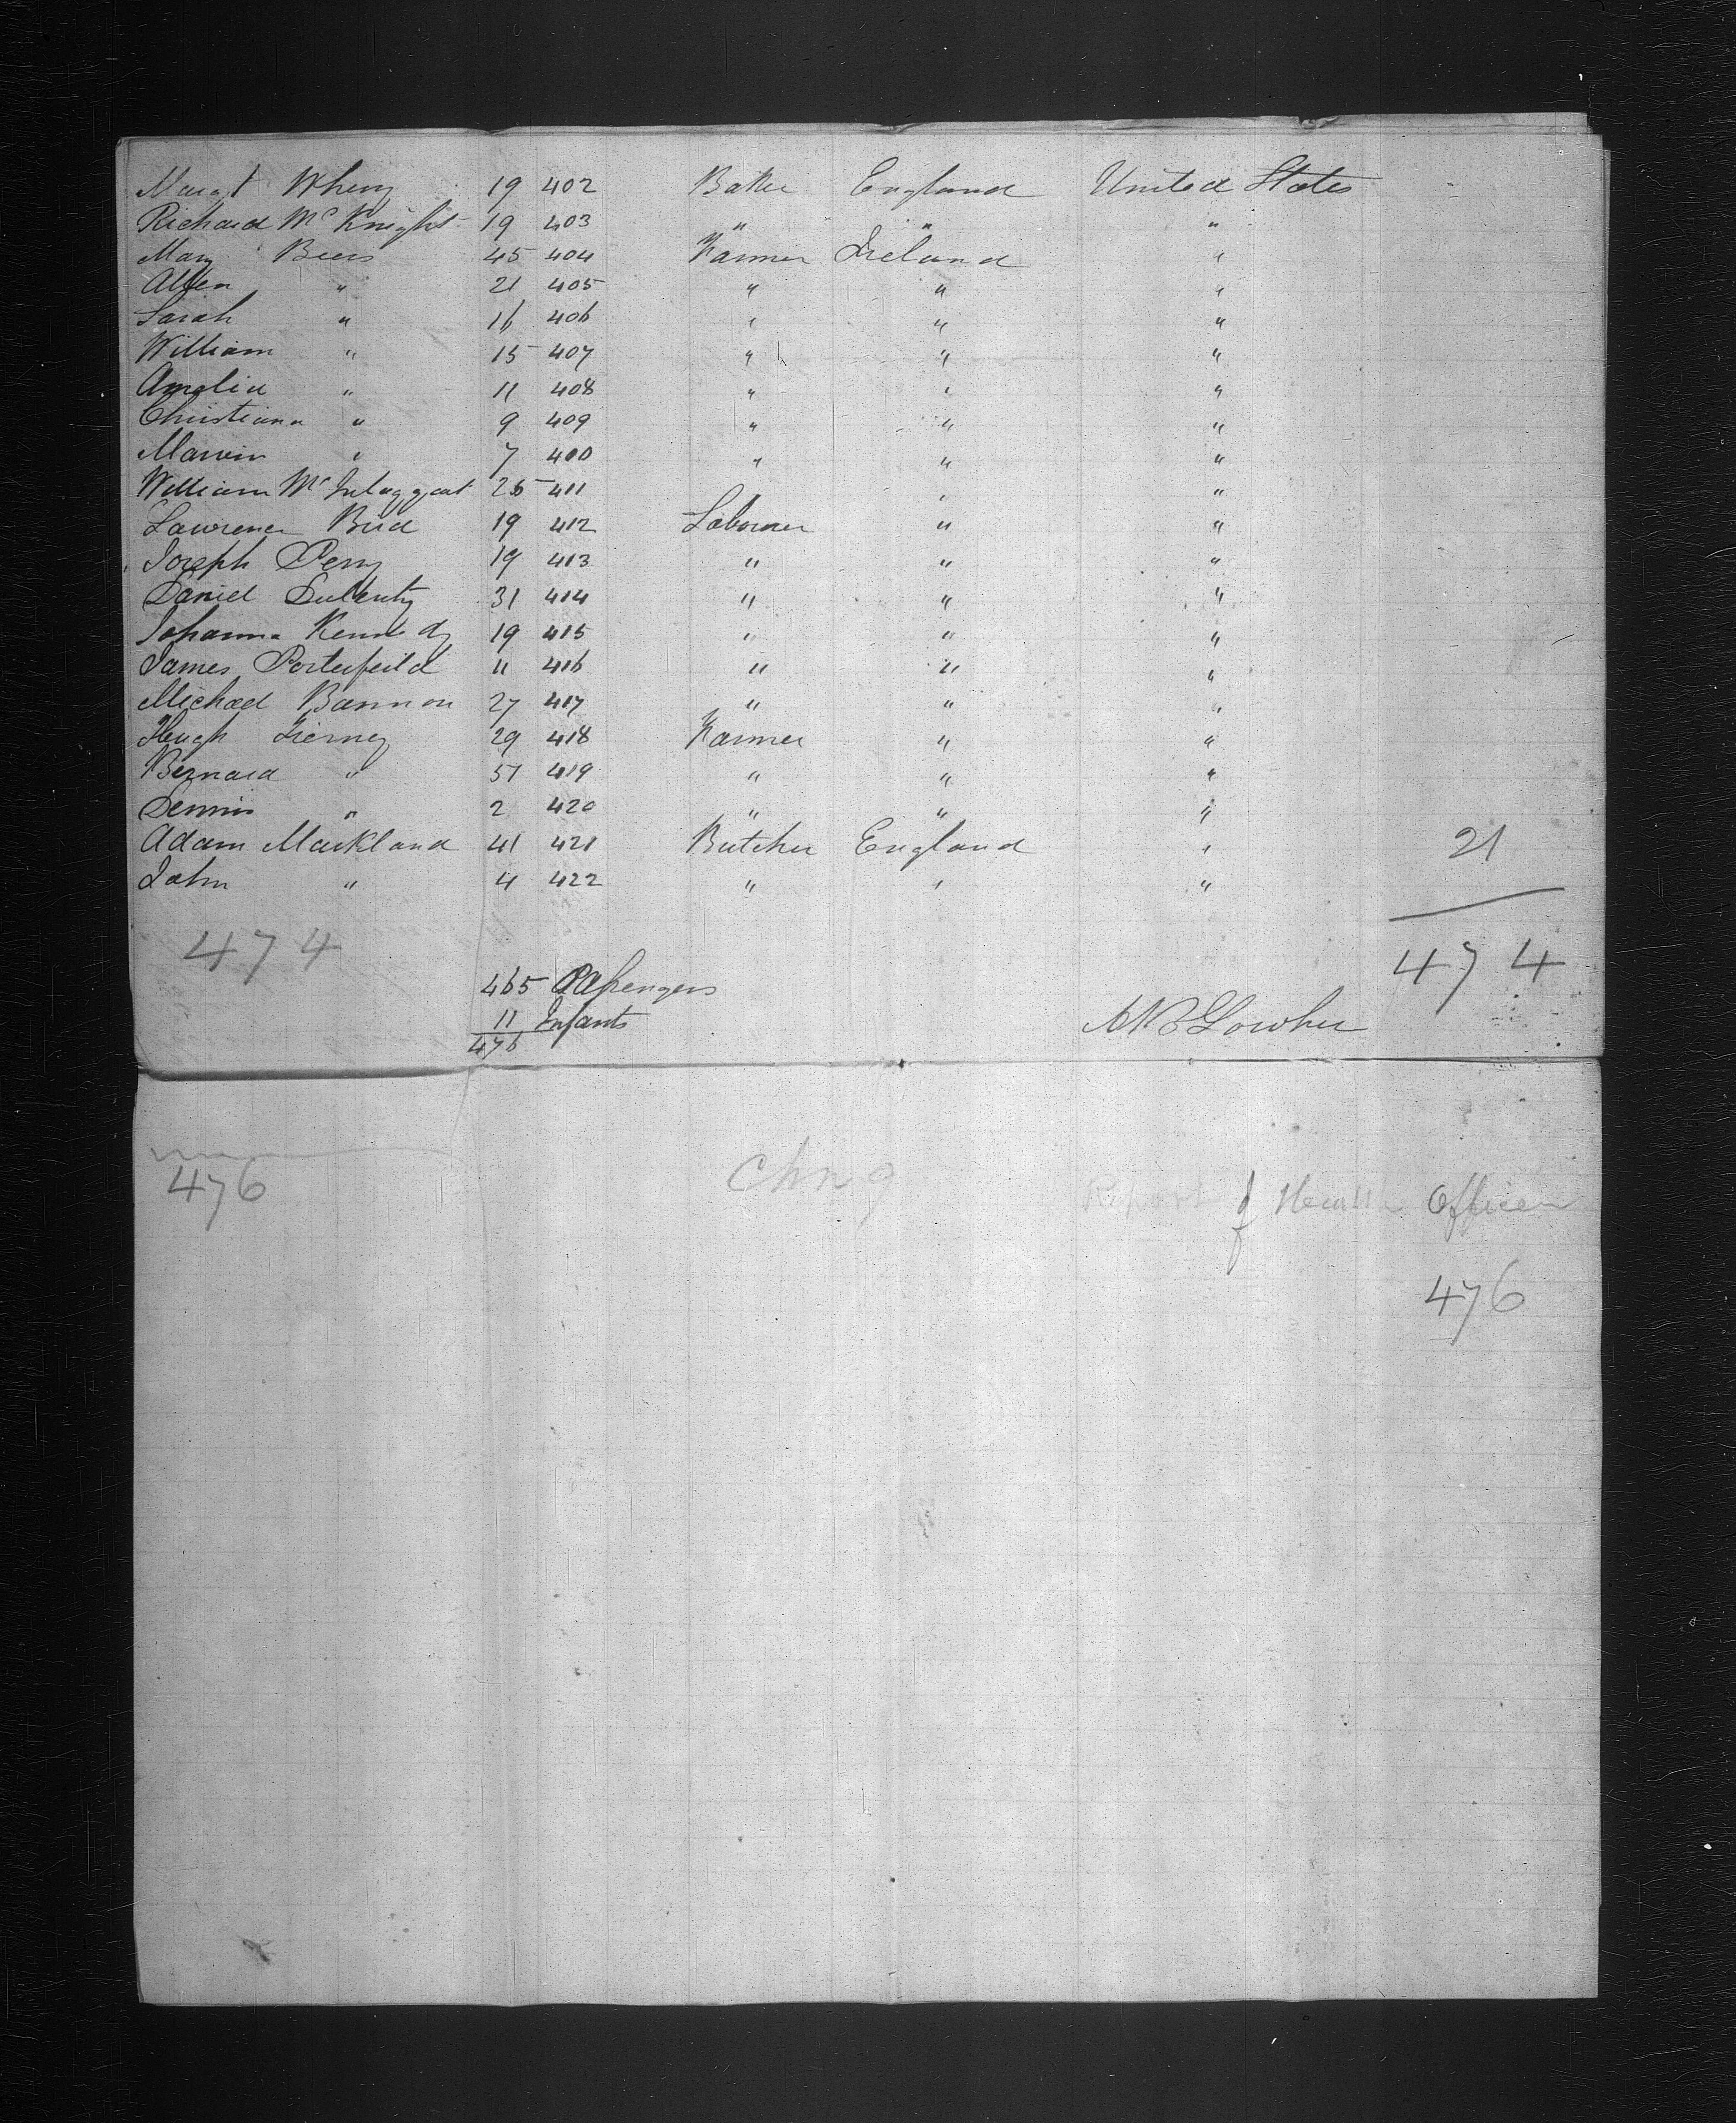 Margt Wherry 19 402 Baker England United States
Richard Mc Knight 19 403 " " "
Mary Beers 45 404 Farmer Ireland "
Allen " 21 405 " " "
Sarah " 16 406 " " "
William " 15 407 " " "
Amelia " 11 408 " " "
Christiana " 9 409 " " "
Marvin " 7 410 " " "
William Mc 25 411 " "
Lawrence Bird 19 412 Laborer " "
Joseph Perry 19 413 " " "
Daniel 31 414 " " "
Johanna Kennedy 19 415 " " "
James Porterfeild 11 416 " " "
Michael Bannon 27 417 " " "
Hugh Tierney 29 418 Farmer " "
Bernard " 57 419 " " "
Dennis " 2 420 " " "
Adam Markland 41 421 Butcher England " 21
John " 4 422 " " "
474 474
465 Passengers
11 Infants
476
476
Report of Health Officer
476